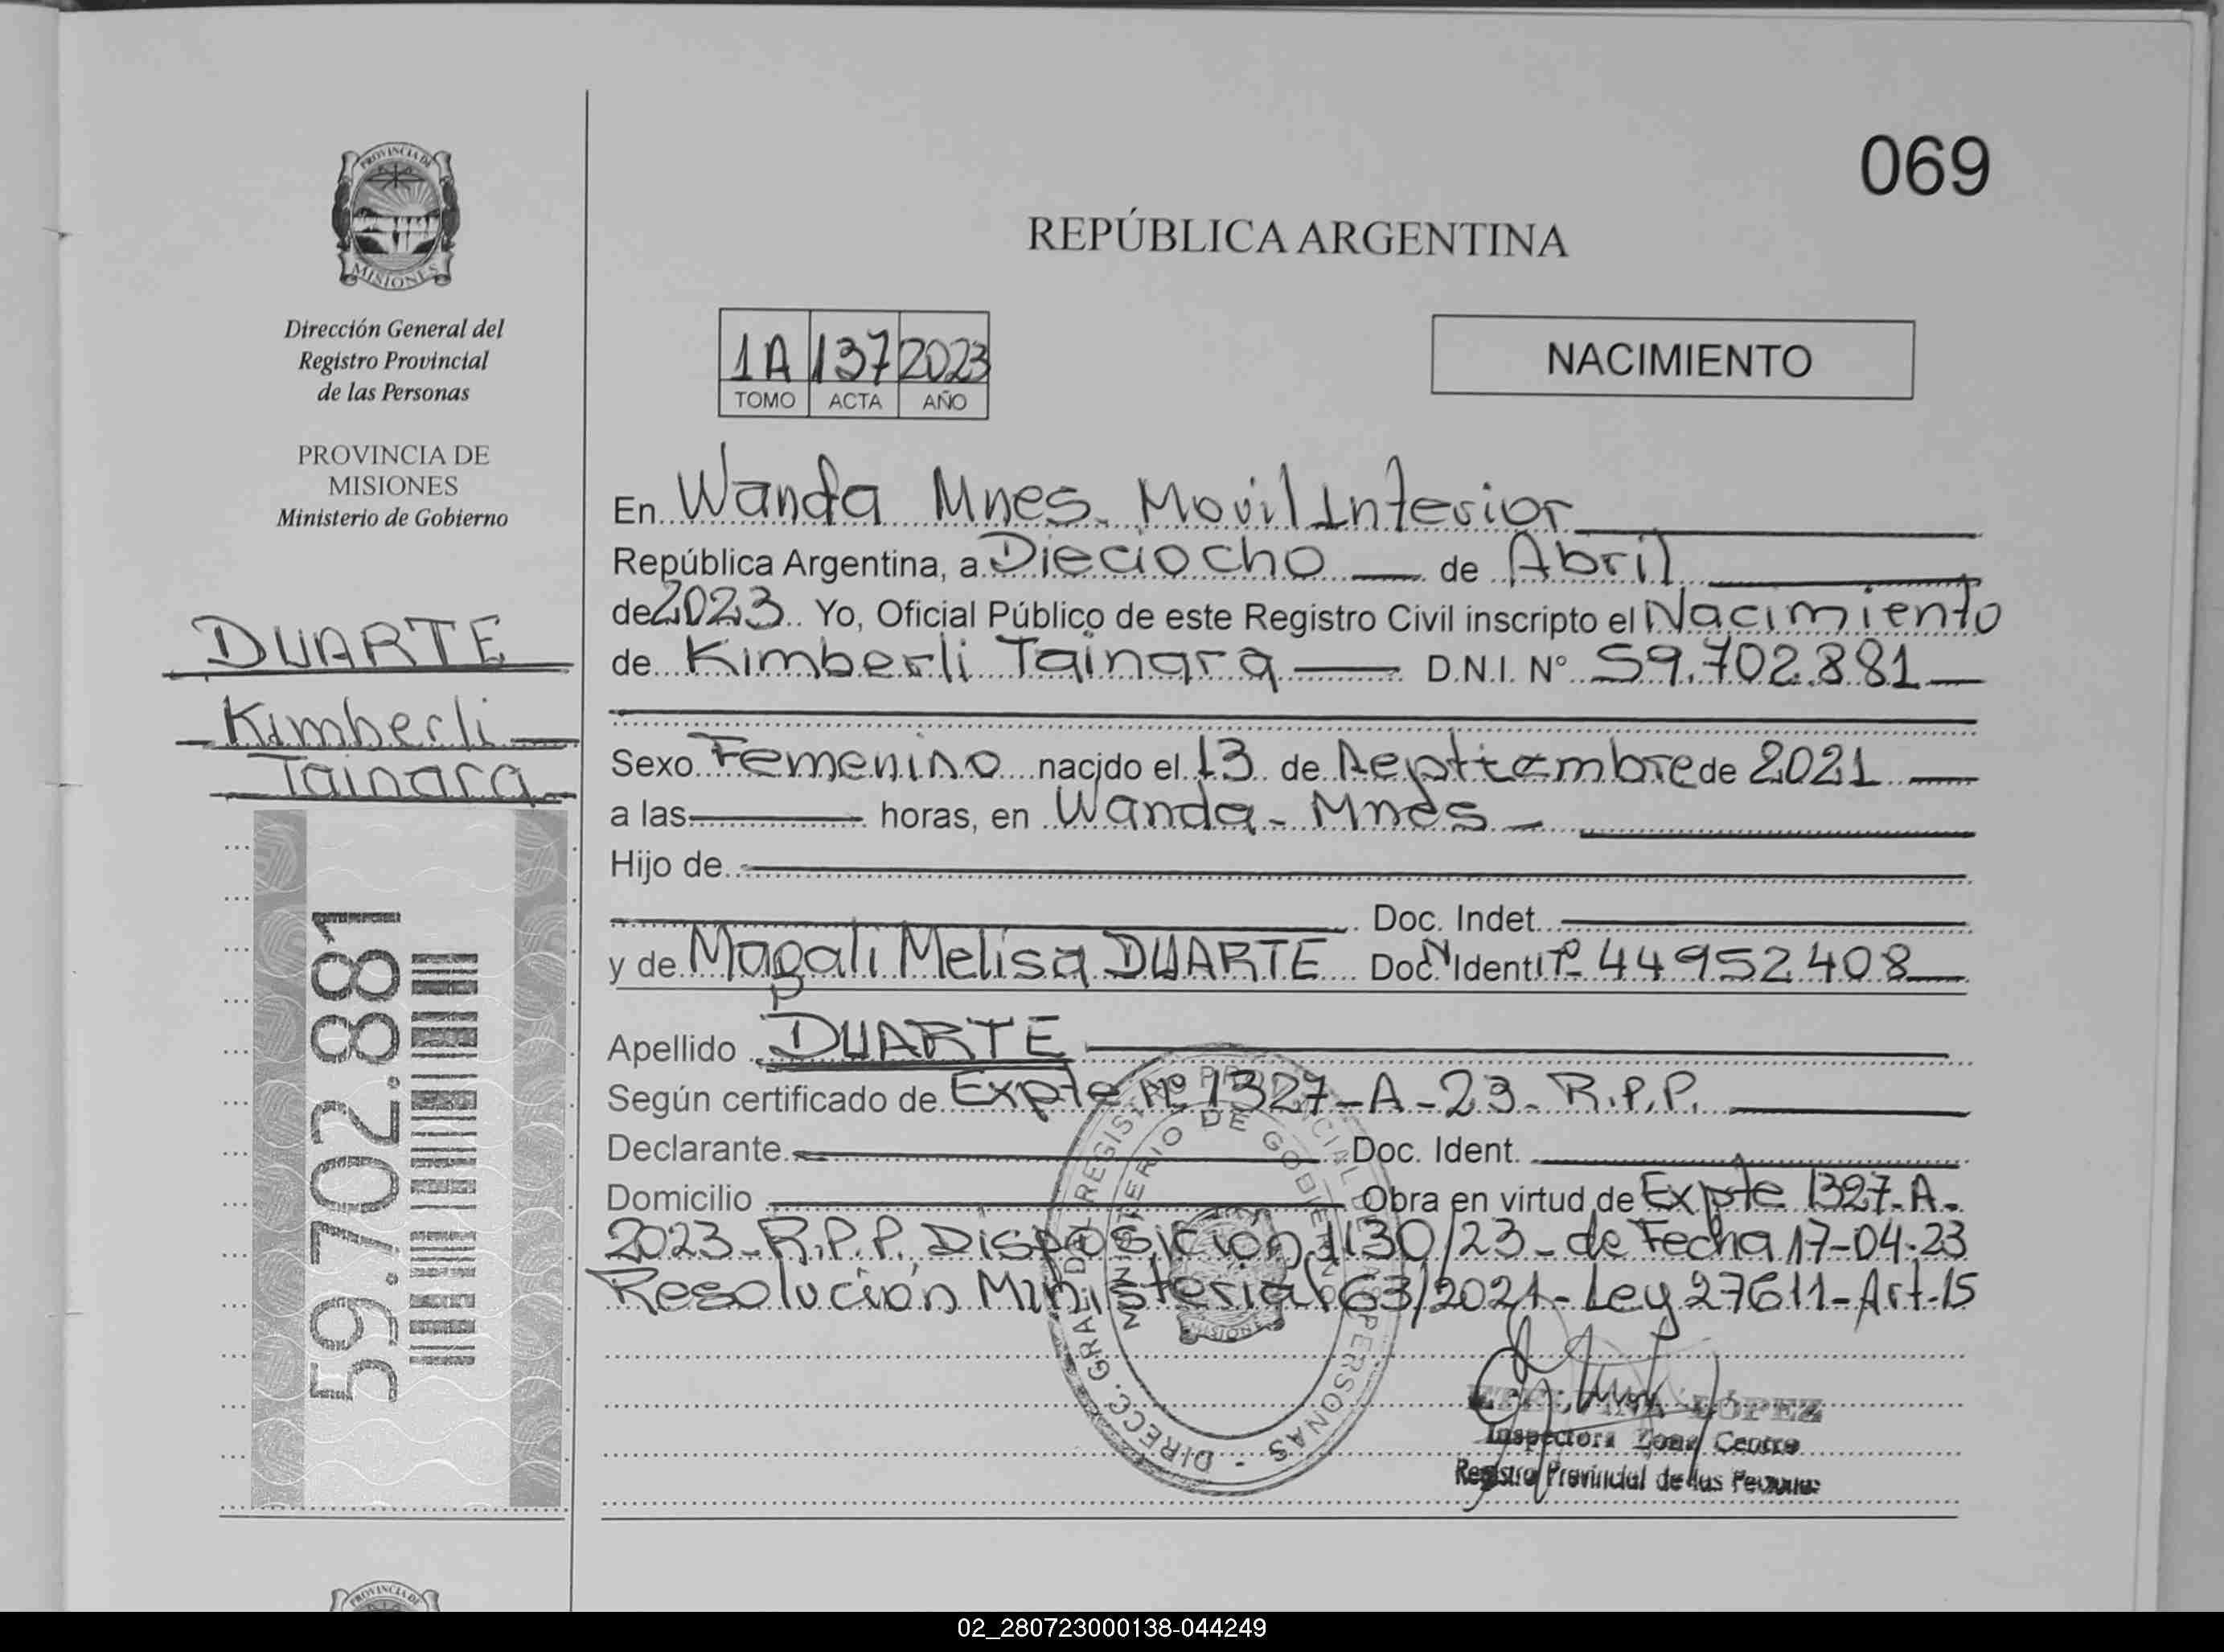 069
PROVINCIA DE
MISIONES
Dirección General del
Registro Provincial
de las Personas
PROVINCIA DE
MISIONES
Ministerio de Gobierno
DUARTE
Kimberli
Tainara
59.702.881
REPÚBLICA ARGENTINA
1A 137 2023
TOMO ACTA AÑO
NACIMIENTO
En Wanda Mnes. Movil Interior
República Argentina, a Dieciocho de Abril
de 2023 Yo, Oficial Público de este Registro Civil inscripto el Nacimiento
de Kimberli Tainara D.N.I. Nº 59.702.881
Sexo Femenino nacido el 13 de Septiembre de 2021
a las horas, en Wanda - Mnes
Hijo de
Doc. Indet.
y de Magali Melisa DUARTE Doc. Ident. Nº 44952408
Apellido DUARTE
Según certificado de Expte Nº 1327-A-23- R.P.P.
Declarante Doc. Ident.
Domicilio Obra en virtud de Expte 1327-A-
2023-R.P.P. Disposición 1130/23- de Fecha 17-04-23
Resolución Ministerial 63/2021- Ley 27611-Art-15
DIRECC. GRAL. DEL REGISTRO PROVINCIAL DE LAS PERSONAS -
MINISTERIO DE GOBIERNO
MISIONES
LÓPEZ
Inspectora Zona Centro
Registro Provincial de las Personas
PROVINCIA DE
02_280723000138-044249